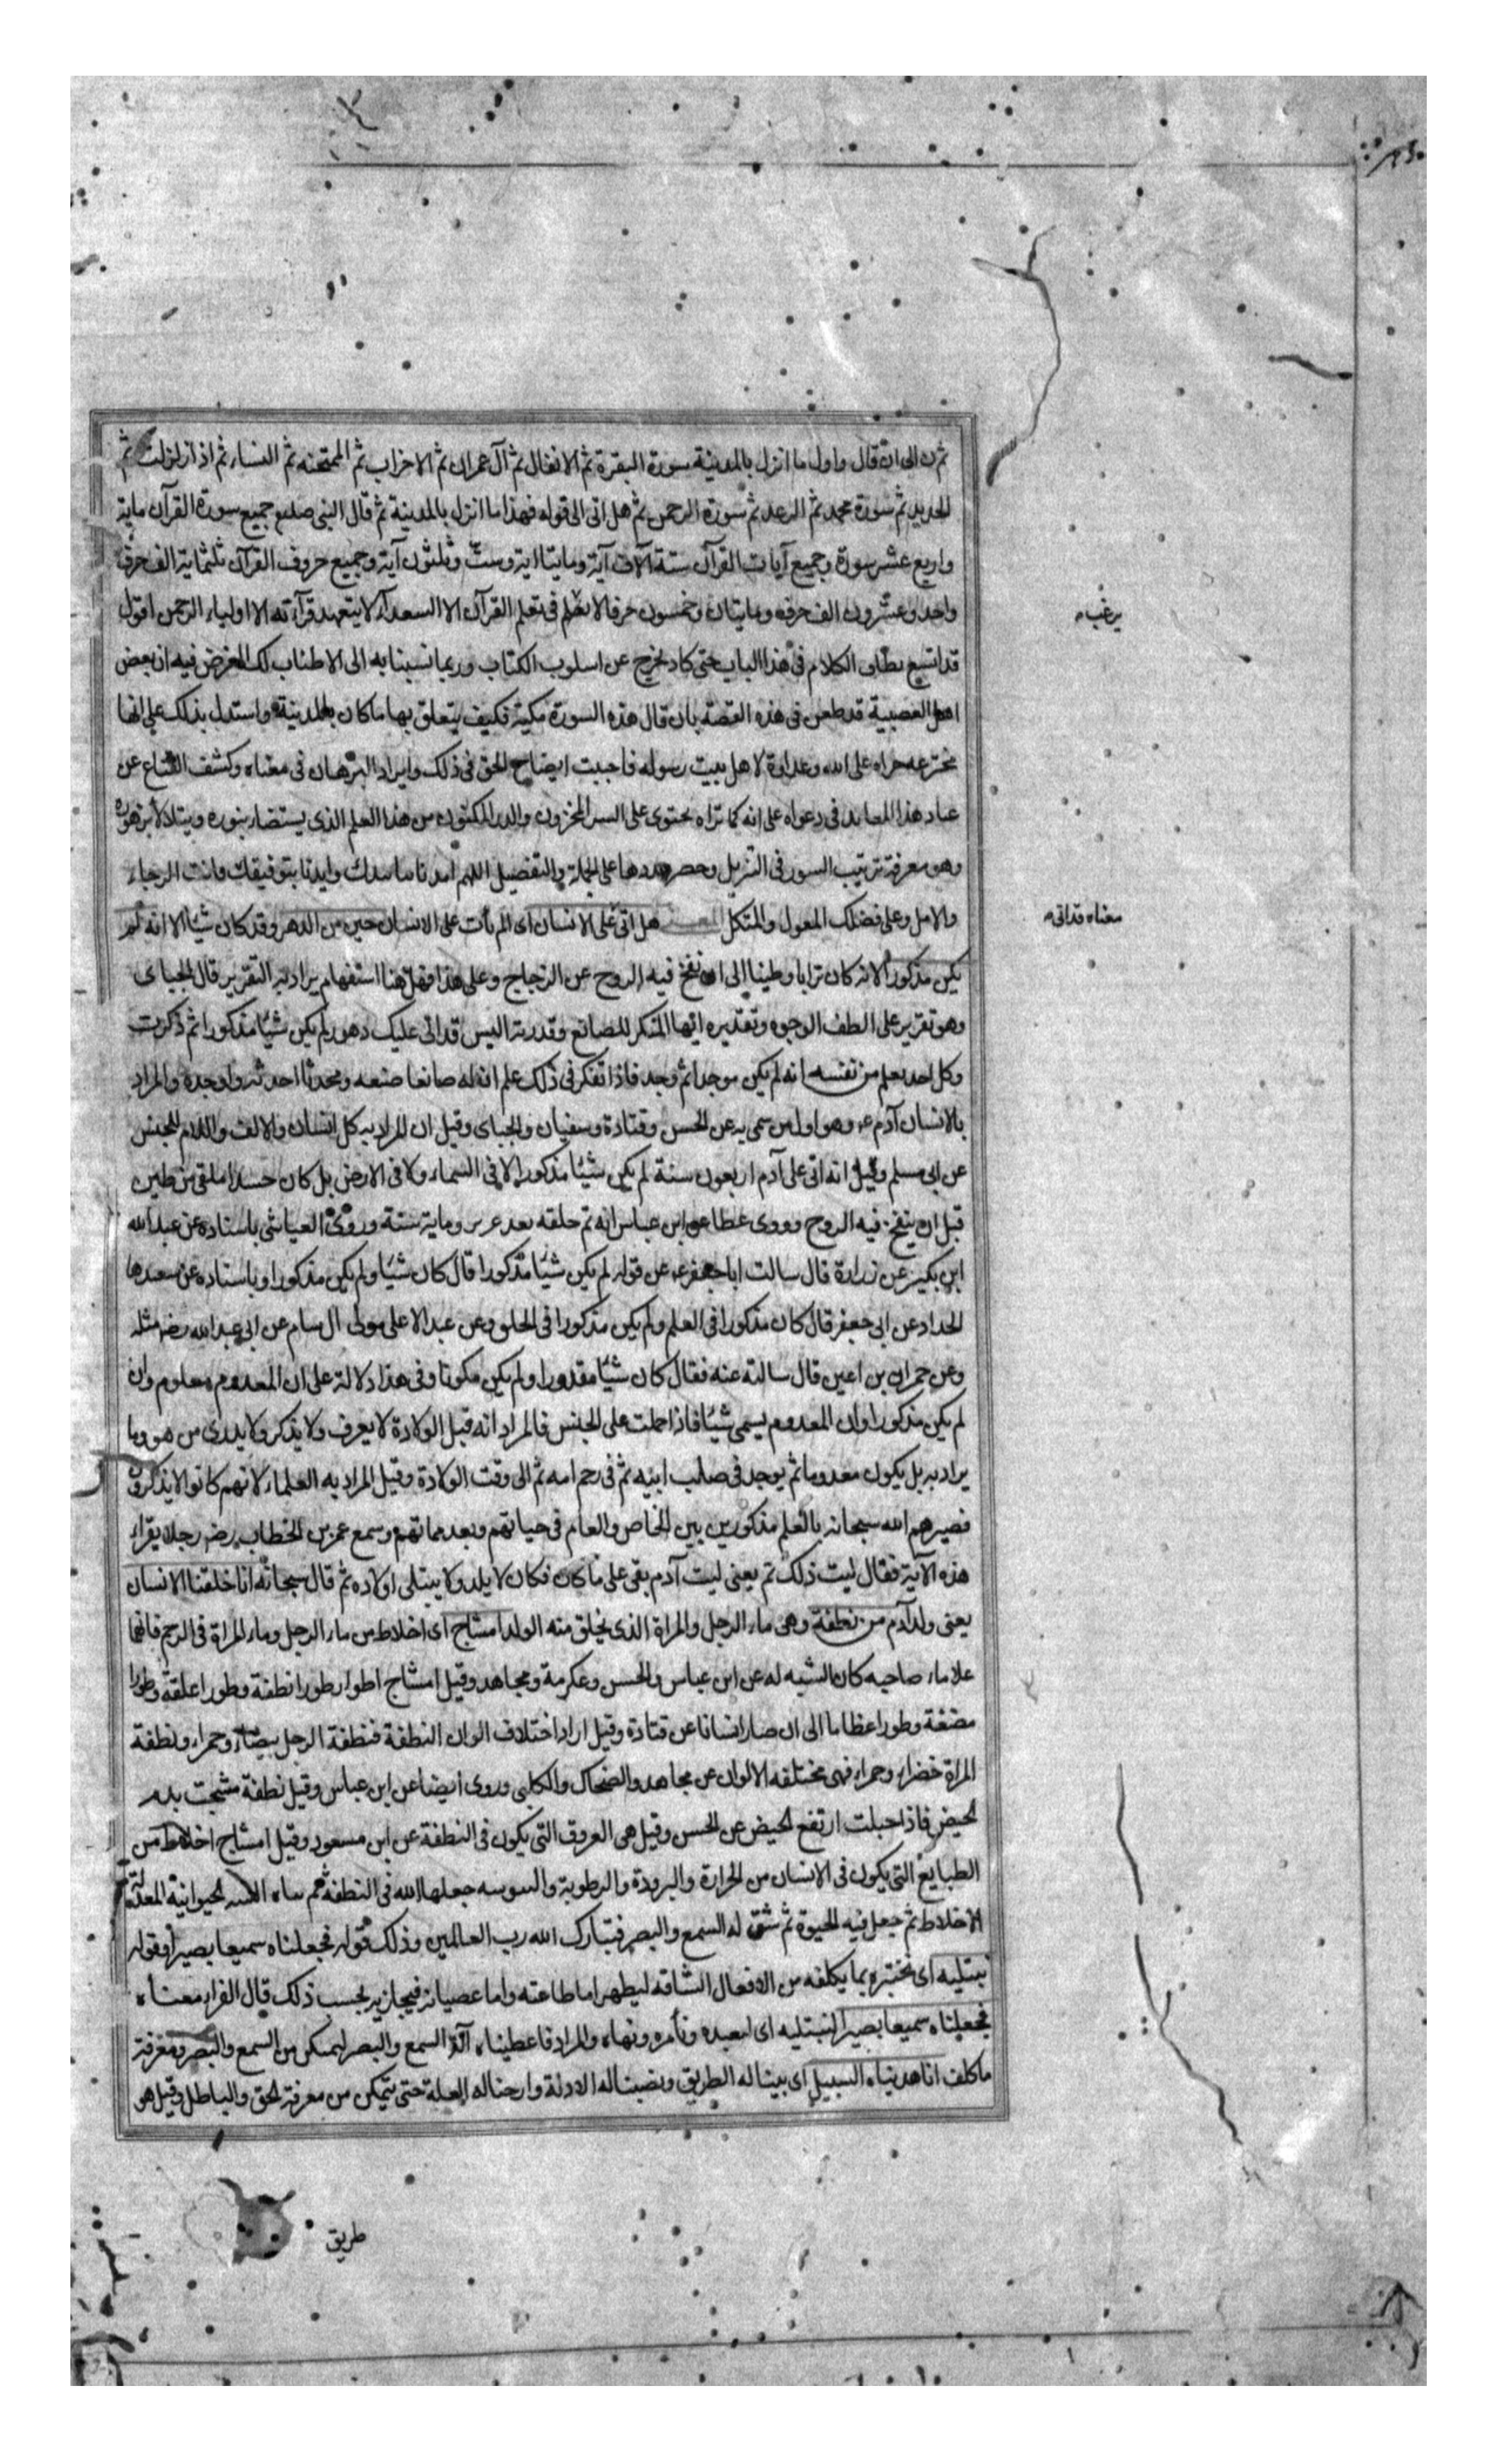 ثم ن الى ان قال واول ما انزل بالمدينة سورة البقرة ثم الانفال ثم آل عمران ثم الاحزاب ثم الممتحنه ثم النساء ثم اذا زلزلت ثم
الحديد ثم سورة محمد ثم الرعد ثم سورة الرحمن ثم هل اتى الى قوله فهذا ما انزل بالمدينة ثم قال النبى صلعم جميع سورة القرآن ماية
واربع عشر سورة وجميع آيات القرآن ستة آلاف آية ومايتا اية وست وثلثون آية وجميع حروف القرآن ثلثماية الف حرف
واحد وعشرون الف حرف ومايتان وخمسون حرفا لا يرغب فى تعلم القرآن الا السعدآء ولا يتعهد قرآءته الا اولياء الرحمن اقول
قد اتسع نطاق الكلام فى هذا الباب حتى كاد يخرج عن اسلوب الكتاب وربما نسبنا به الى الاطناب لكن الغرض فيه ان بعض
اهل العصبية قد طعن فى هذه القصة بان قال هذه السورة مكية فكيف يتعلق بها ما كان بالمدينة واستدل بذلك على انها
مخترعه جراه على الله وعداوة لاهل بيت رسوله فاحببت ايضاح الحق فى ذلك وايراد البرهان فى معناه وكشف القناع عن
عناد هذا المعاند فى دعواه على انه كما تراه يحتوى على السر المخزون والدر المكنون من هذا العلم الذى يستضاء بنوره ويتلالأ بزهوره
وهو معرفة ترتيب السور فى التنزيل وحصر عددها على الجملة والتفصيل اللهم امدنا بتاييدك وايدنا بتوفيقك فانت الرجاء
والامل وعلى فضلك المعول والمتكل المعنى هل اتى على الانسان اى الم يأت على الانسان حين من الدهر وقد كان شيئا الا انه لم
يكن مذكورا لانه كان ترابا وطينا الى ان نفخ فيه الروح عن الزجاج وعلى هذا فهل هنا استفهام يراد به التقرير قال الجباى
وهو تقرير على الطف الوجوه وتقديره ايها المنكر للصانع وقدرته اليس قد اتى عليك دهور لم يكن شيئا مذكورا ثم ذكرت
وكل احد يعلم من نفسه انه لم يكن موجدا ثم وجد فاذا تفكر فى ذلك علم ان له صانعا صنعه ومحدثا احدثه واوجده والمراد
بالانسان آدم ع وهو اول من سمى به عن الحسن وقتادة وسفيان والجباى وقيل ان المراد به كل انسان والالف واللام للجنس
عن ابى مسلم وقيل انه اتى على آدم اربعون سنة لم يكن شيئا مذكورا لا فى السماء ولا فى الارض بل كان جسدا ملقى من طين
قبل ان ينفخ فيه الروح وروى عطا عن ابن عباس انه تم خلقه بعد عشرين وماية سنة وروى العياشى باسناده عن عبد الله
ابن بكير عن زرارة قال سالت ابا جعفر ع عن قوله لم يكن شيئا مذكورا قال كان شيئا ولم يكن مذكورا وباسناده عن سعيدها
الحداد عن ابى جعفر قال كان مذكورا فى العلم ولم يكن مذكورا فى الخلق وعن عبد الاعلى مولى ال سام عن ابى عبد الله رضه مثله
وعن حمران بن اعين قال سالته عنه فقال كان شيئا مقدورا ولم يكن مكونا وفى هذا دلالة على ان المعدوم معلوم وان
لم يكن مذكورا وان المعدوم يسمى شيئا فاذا حملت على الجنس فالمراد انه قبل الولادة لا يعرف ولا يذكر ولا يدرى من هو وما
يراد به بل يكون معدوما ثم يوجد فى صلب ابيه ثم فى رحم امه ثم الى وقت الولادة وقيل المراد به العلماء لانهم كانوا لا يذكرون
فصيرهم الله سبحانه بالعلم مذكورين بين الخاص والعام فى حياتهم وبعد مماتهم وسمع عمر بن الخطاب رضه رجلا يقراء
هذه الآية فقال ليت ذلك تم يعنى ليت آدم بقى على ما كان فكان لا يلد ولا يبتلى اولاده ثم قال سبحانه انا خلقنا الانسان
يعنى ولد آدم من نطفة وهى ماء الرجل والمراة الذى يخلق منه الولد امشاج اى اخلاط من ماء الرجل وماء المراة فى الرحم فايهما
علا ماء صاحبه كان الشبه له عن ابن عباس والحسن وعكرمة ومجاهد وقيل امشاج اطوار طورا نطفة وطورا علقة وطورا
مضغة وطورا عظاما الى ان صار انسانا عن قتادة وقيل اراد اختلاف الوان النطفة فنطفة الرجل بيضاء وحمراء ونطفة
المراة خضراء وحمراء فهى مختلفه الالوان عن مجاهد والضحاك والكلبى وروى ايضا عن ابن عباس وقيل نطفة مشجت بدم
الحيض فاذا حبلت ارتفع الحيض عن الحسن وقيل هى العروق التى يكون فى النطفة عن ابن مسعود وقيل امشاج اخلاط من
الطبايع التى يكون فى الانسان من الحرارة والبرودة والرطوبة واليبوسه جعلها الله فى النطفة ثم بناه الله الحيوانية المعدلة
الاخلاط ثم جعل فيه الحيوة ثم شق له السمع والبصر فتبارك الله رب العالمين وذلك قوله فجعلناه سميعا بصيرا وقوله
نبتليه اى نختبره بما يكلفه من الافعال الشاقه ليظهر اما طاعته واما عصيانه فيجازيه بحسب ذلك قال الفراء معناه
فجعلناه سميعا بصيرا لنبتليه اى لنعبده ونأمره ونهاه والمراد فاعطيناه آلة السمع والبصر ليمكن من السمع والبصر ومعرفة
ما كلف انا هديناه السبيل اى بينا له الطريق ونصبنا له الادلة وازحنا له العلة حتى يتمكن من معرفة الحق والباطل وقيل هو
يرغب
معناه قد اتى
طريق